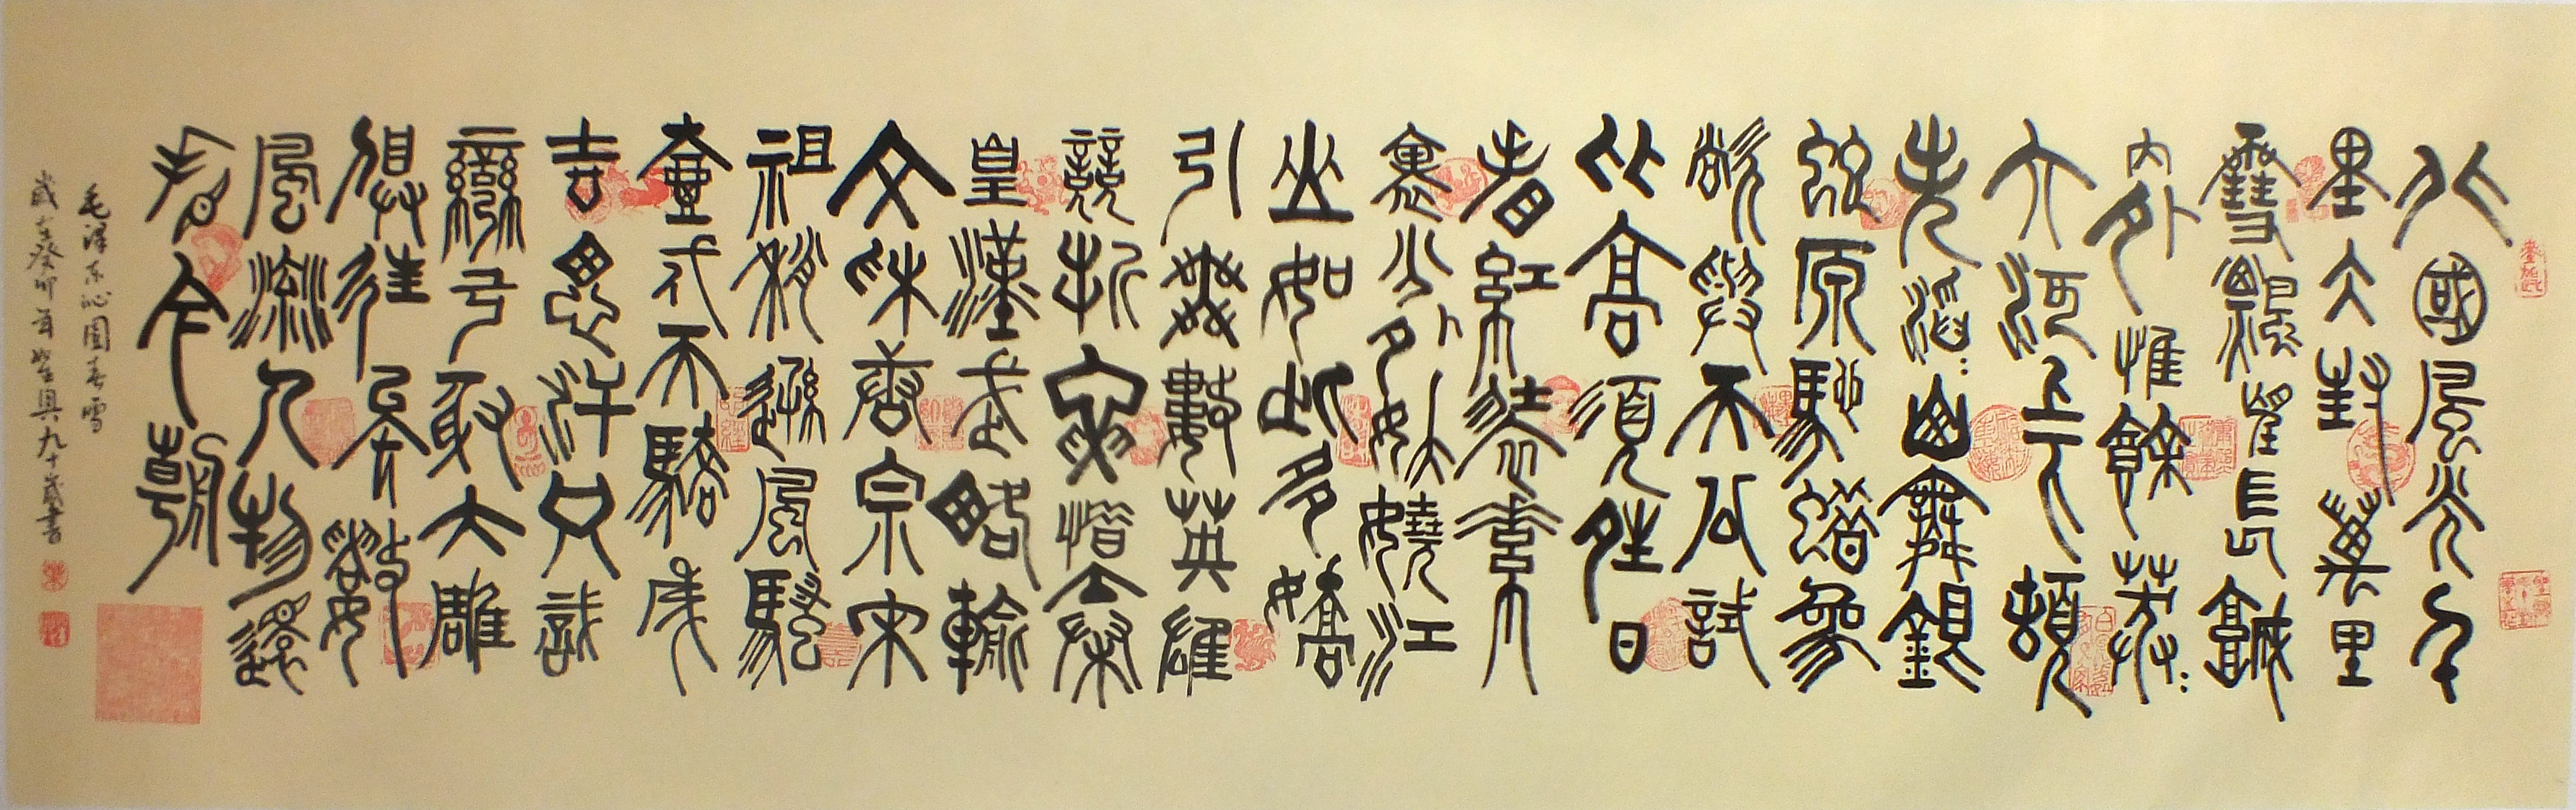 北國風光千
里冰封萬里
雪飄望長城
内外惟餘莽:
大河上下頓
失滔:山舞銀
蛇原馳蠟象
欲與天公試
比高須晴日
看紅裝素
裹分外妖嬈江
山如此多嬌
引無數英雄
競折腰惜秦
皇漢武略輸
文采唐宗宋
祖稍遜風騷
壹代天驕成
吉思汗只識
彎弓射大雕
俱往矣數
風流人物還
看今朝
毛澤東沁園春雪
歲在癸卯年九十歲書